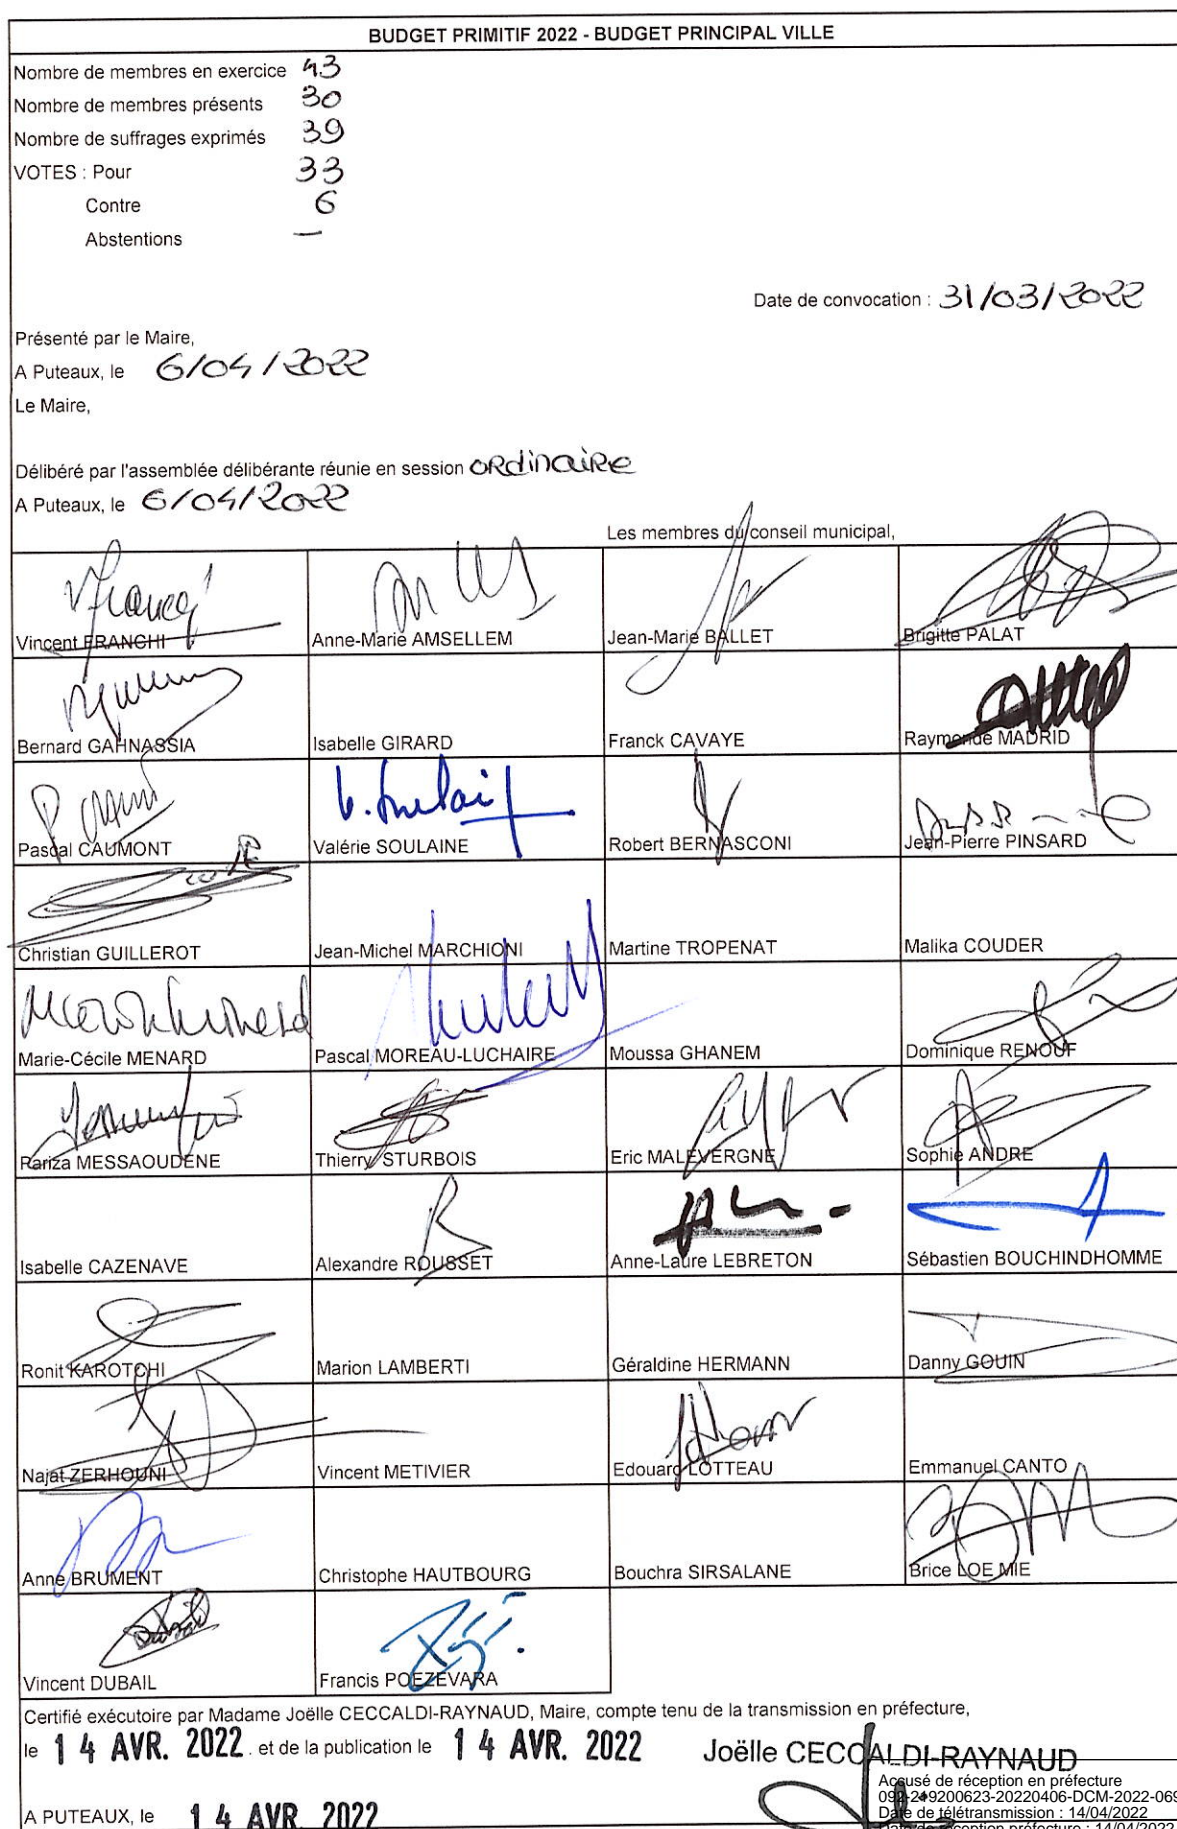 BUDGET PRIMITIF 2022 - BUDGET PRINCIPAL VILLE
Nombre de membres en exercice 43
Nombre de membres présents 30
Nombre de suffrages exprimés 39
VOTES : Pour 33
Contre 6
Abstentions —
Date de convocation : 31/03/2022
Présenté par le Maire,
A Puteaux, le 6/04/2022
Le Maire,
Délibéré par l'assemblée délibérante réunie en session ordinaire
A Puteaux, le 6/04/2022
Les membres du conseil municipal,
Vincent FRANCHI Anne-Marie AMSELLEM Jean-Marie BALLET Brigitte PALAT
Bernard GAHNASSIA Isabelle GIRARD Franck CAVAYE Raymonde MADRID
Pascal CAUMONT Valérie SOULAINE Robert BERNASCONI Jean-Pierre PINSARD
Christian GUILLEROT Jean-Michel MARCHIONI Martine TROPENAT Malika COUDER
Marie-Cécile MENARD Pascal MOREAU-LUCHAIRE Moussa GHANEM Dominique RENOUF
Rariza MESSAOUDENE Thierry STURBOIS Eric MALEVERGNE Sophie ANDRE
Isabelle CAZENAVE Alexandre ROUSSET Anne-Laure LEBRETON Sébastien BOUCHINDHOMME
Ronit KAROTCHI Marion LAMBERTI Géraldine HERMANN Danny GOUIN
Najat ZERHOUNI Vincent METIVIER Edouard LOTTEAU Emmanuel CANTO
Anne BRUMENT Christophe HAUTBOURG Bouchra SIRSALANE Brice LOE MIE
Vincent DUBAIL Francis POEZEVARA
Certifié exécutoire par Madame Joëlle CECCALDI-RAYNAUD, Maire, compte tenu de la transmission en préfecture,
le 14 AVR. 2022 . et de la publication le 14 AVR. 2022
Joëlle CECCALDI-RAYNAUD
Accusé de réception en préfecture
092-219200623-20220406-DCM-2022-069
Date de télétransmission : 14/04/2022
Date de réception préfecture : 14/04/2022
A PUTEAUX, le 14 AVR. 2022